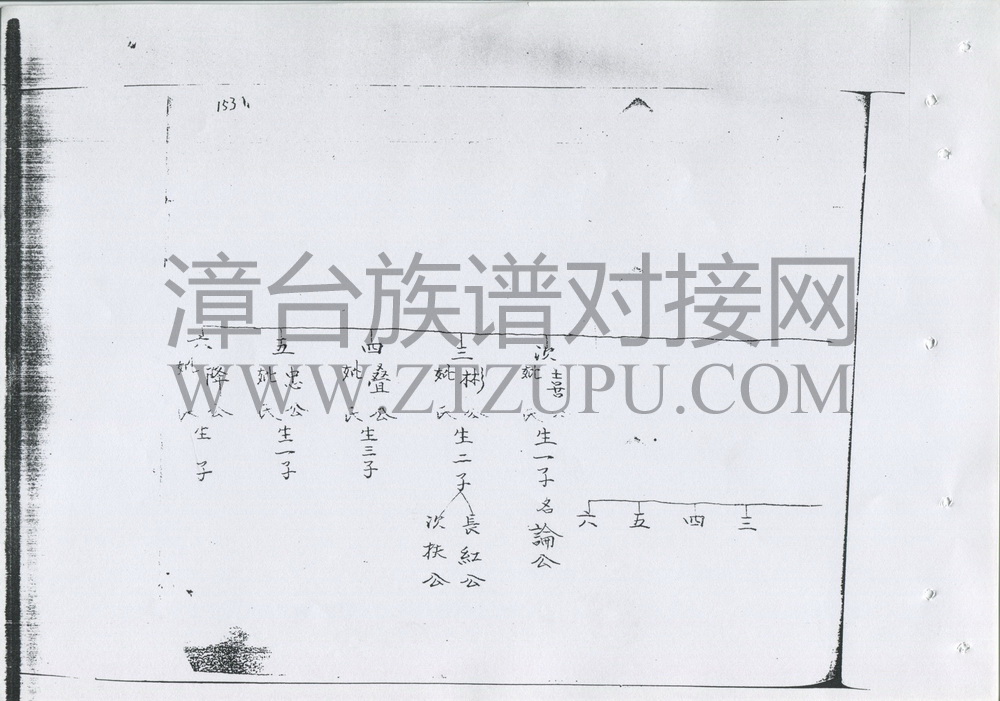 153
次 喜公
妣 氏
生一子名論公
三 彬公
妣 氏
生二子
長紅公
次扶公
四 叠公
妣 氏
生三子
五 忠公
妣 氏
生一子
六 降公
妣 氏
生 子
三
四
五
六
漳台族谱对接网
WWW.ZTZUPU.COM